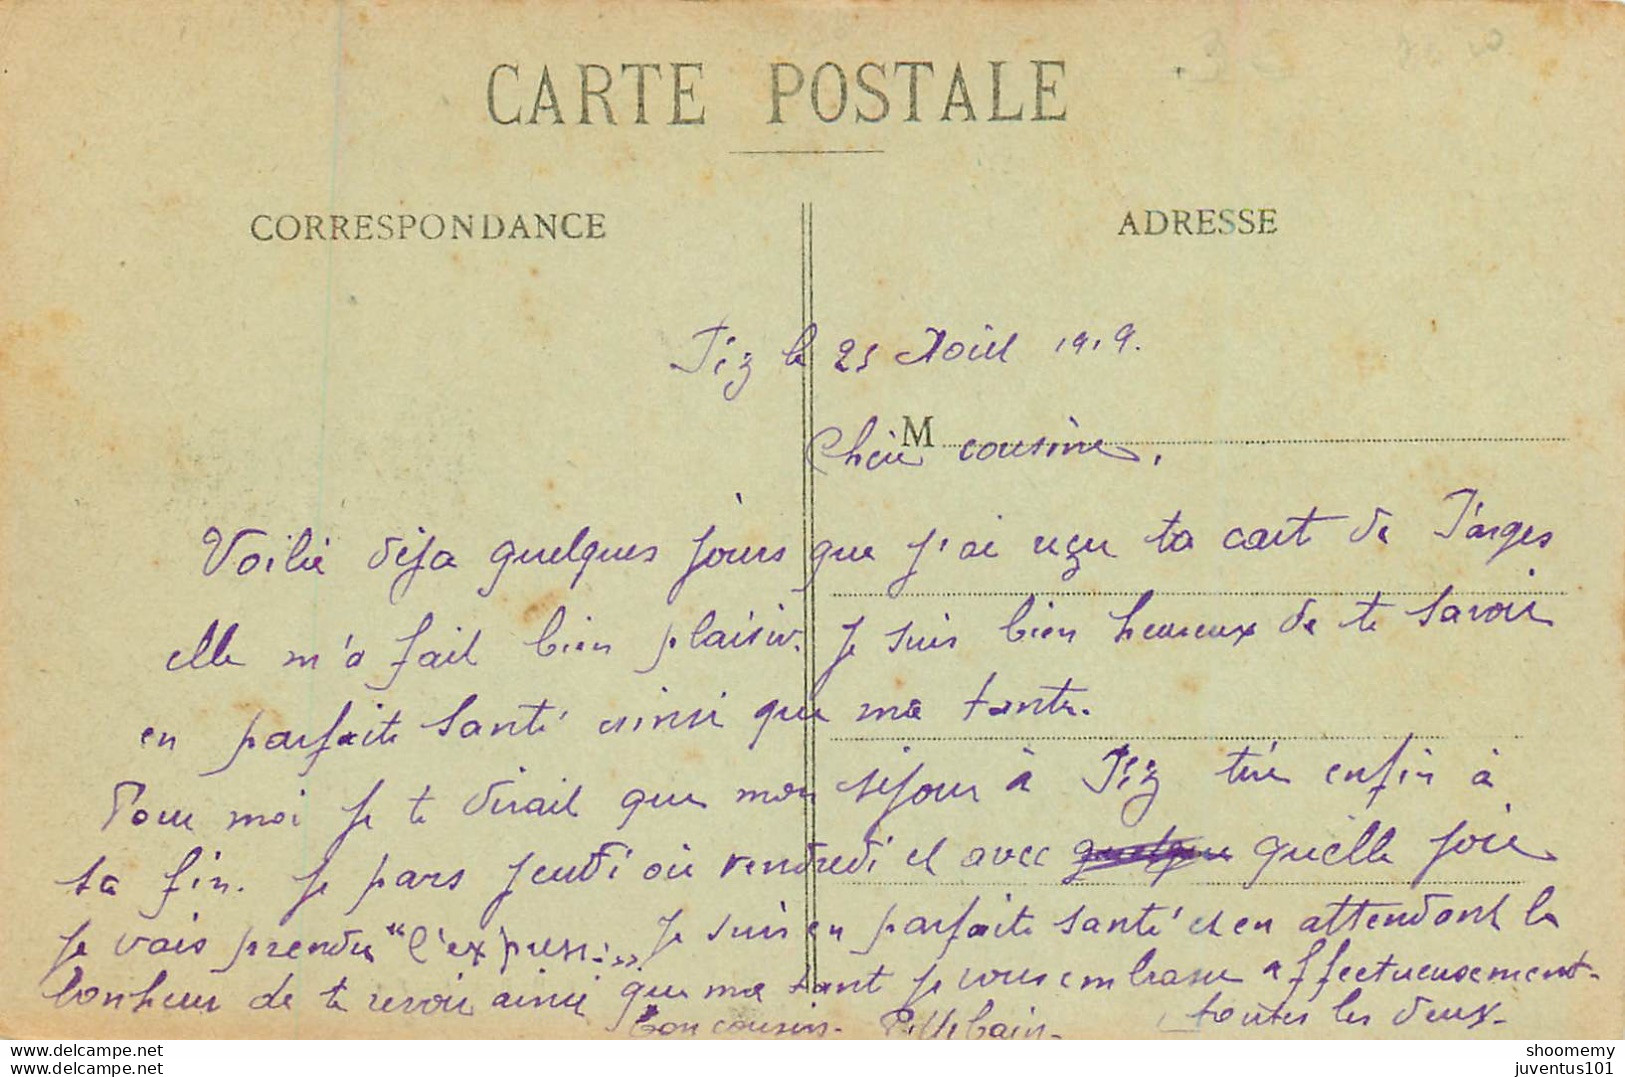 CARTE POSTALE
CORRESPONDANCE
ADRESSE
le 25 Août 1919.
M
Chère cousine,
Voilà déja quelques jours que j'ai reçu ta cart de
elle m'a fait bien plaisir. Je suis bien heureux de te savoir
en parfaite santé ainsi que ma tante.
Pour moi je te dirait que mon séjour à tire enfin à
sa fin. Je pars jeudi où vendredi et avec quelque quelle joie
je vais prendre "l'express." Je suis en parfaite santé et en attendant le
bonheur de te revoir ainsi que ma tant je vous embrasse affectueusement
toutes les deux.
Ton cousin.
www.delcampe.net
shoomemy
juventus101